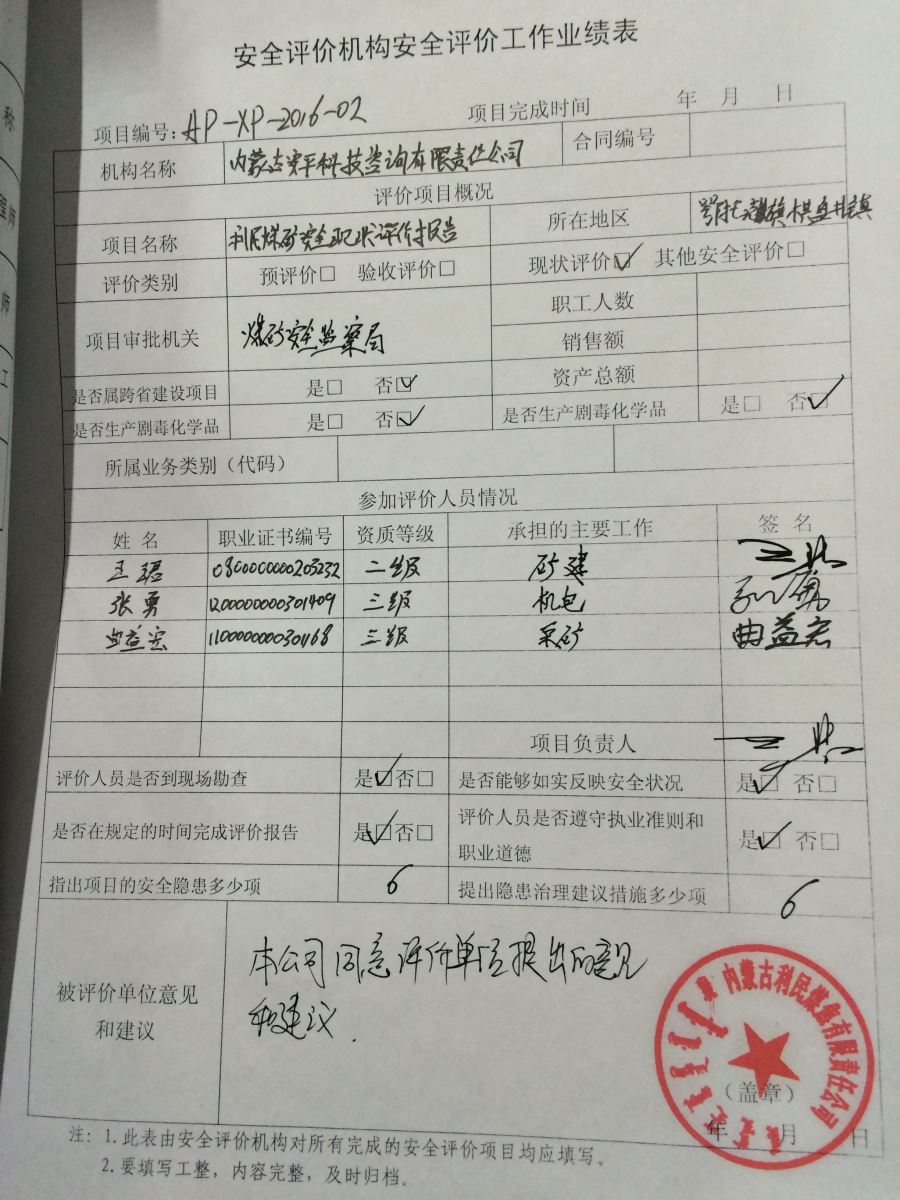 安全评价机构安全评价工作业绩表
项目编号：AP-XP-2016-02 项目完成时间 年 月 日
机构名称 内蒙古安平科技咨询有限责任公司 合同编号
评价项目概况
项目名称 利民煤矿安全现状评价报告 所在地区 棋盘井镇
评价类别 预评价□ 验收评价□ 现状评价☑ 其他安全评价□
项目审批机关 煤矿安全监察局 职工人数
销售额
资产总额
是否属跨省建设项目 是□ 否☑
是否生产剧毒化学品 是□ 否☑ 是否生产剧毒化学品 是□ 否☑
所属业务类别（代码）
参加评价人员情况
姓 名 职业证书编号 资质等级 承担的主要工作 签 名
王珺 0800000000203232 二级 矿建
张勇 1200000000301409 三级 机电
曲益宏 1100000000301168 三级 采矿 曲益宏
项目负责人
评价人员是否到现场勘查 是☑否□ 是否能够如实反映安全状况 是☑ 否□
是否在规定的时间完成评价报告 是☑否□ 评价人员是否遵守执业准则和
职业道德 是☑ 否□
指出项目的安全隐患多少项 6 提出隐患治理建议措施多少项 6
被评价单位意见
和建议
本公司同意评价单位提出的意见
和建议.
内蒙古利民煤焦有限责任公司
（盖章）
年 月 日
注：1.此表由安全评价机构对所有完成的安全评价项目均应填写。
2.要填写工整，内容完整，及时归档。
称
程师
师
工